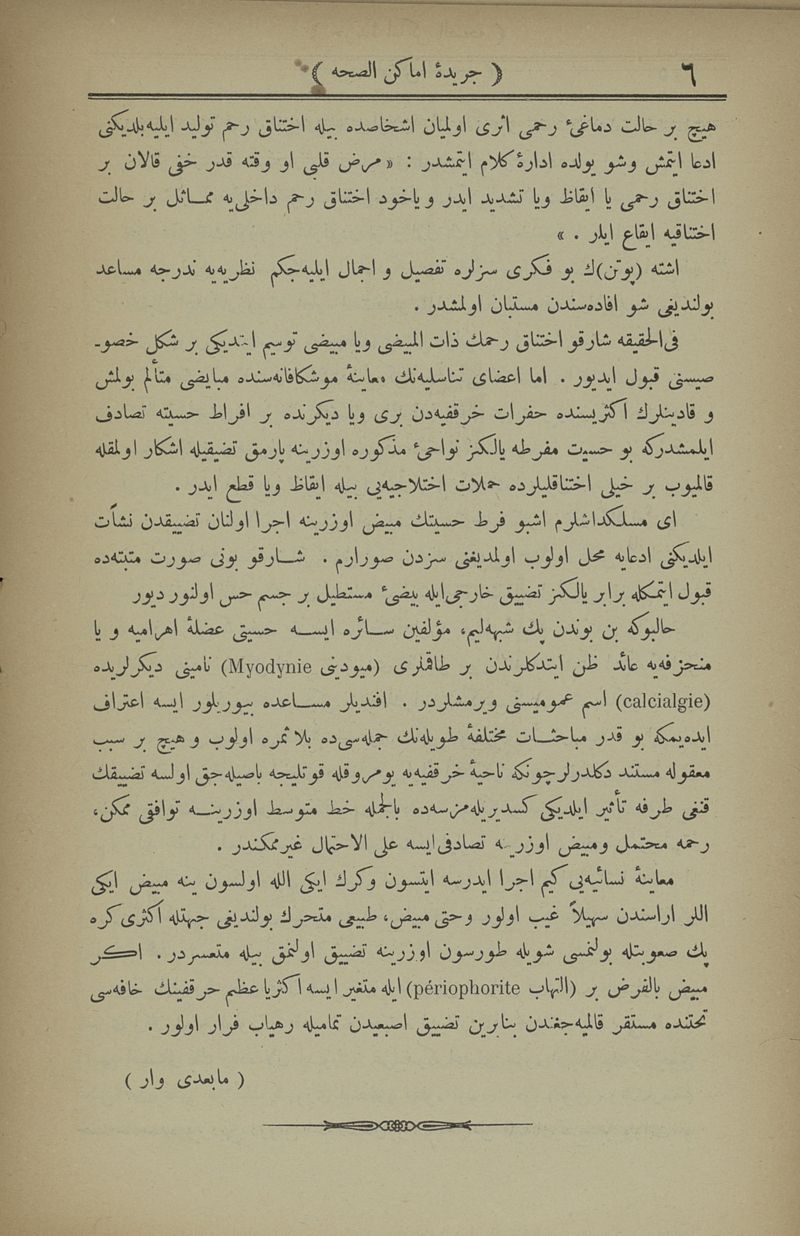 ٦
( جريدۀ اماكن الصحه )
هيچ بر حالت دماغیٔ رحمی اثری اولميان اشخاصده بيله اختناق رحم توليد ايليه‌بلديكنی
ادعا ايتمش وشو يولده ادارۀ كلام ايتمشدر : « مرض قلبی او وقته قدر خفی قالان بر
اختناق رحمی يا ايقاظ ويا تشديد ايدر و ياخود اختناق رحم داخلی‌يه مماثل بر حالت
اختناقيه ايقاع ايلر . »
اشته (پوتن)ك بو فكری سزلره تفصيل و اجمال ايليه‌جكم نظريه‌يه ندرجه مساعد
بولنديغی شو افاده‌سندن مستبان اولمشدر .
فی‌الحقيقه شارقو اختناق رحمك ذات المبيضی ويا مبيضی توسيم ايتديكی بر شكل خصو-
صيسنی قبول ايديور . اما اعضای تناسليه‌نك معاينۀ موشكافانه‌سنده مبايضی متألم بولمش
و قادينلرك اكثريسنده حفرات خرقفيه‌دن بری ويا ديكرنده بر افراط حسيته تصادف
ايلمشدركه بو حسيت مفرطه يالكز نواحیٔ مذكوره اوزرينه پارمق تضيقيله اشكار اولمقله
قالميوب بر خيلی اختناقليلرده حملات اختلاجيه‌يی بيله ايقاظ ويا قطع ايدر .
ای مسلكداشلرم اشبو فرط حسيتك مبيض اوزرينه اجرا اولنان تضييقدن نشأت
ايلديكنی ادعايه محل اولوب اولمديغنی سزدن صورارم . شارقو بونی صورت مثبته‌ده
قبول ايتمكله برابر يالكز تضييق خارجی‌ايله بيضیٔ مستطيل بر جسم حس اولنور ديور
حالبوكه بن بوندن پك شبهه‌ليم، مؤلفين سائره ايسه حسيتی عضلۀ اهراميه و يا
منحزفه‌يه عائد ظن ايتدكلرندن بر طاقملری (ميودينی Myodynie) نامينی ديكرلريده
(calcialgie) اسم عموميسنی ويرمشلردر . افنديلر مساعده بيوريلور ايسه اعتراف
ايده‌يمكه بو قدر مباحثات مختلفۀ طويله‌نك جمله‌سی‌ده بلا ثمره اولوب و هيچ بر سبب
معقوله مستند دكلدرلر چونكه ناحيۀ خرقفيه‌يه يومروقله قوتليجه باصيله‌جق اولسه تضييقك
قنغی طرفه تأثير ايلديكی كسديريله‌مزسه‌ده بالجمله خط متوسط اوزرينه توافقی ممكن،
رحمه محتمل ومبيض اوزرينه تصادفی ايسه علی الاحتمال غيرممكندر .
معاينۀ نسائيه‌يی كيم اجرا ايدرسه ايتسون وكرك ايكی الله اولسون ينه مبيض ايكی
اللر اراسندن سهيلاً غيب اولور وحتی مبيض، طبيعی متحرك بولنديغی جهتله اكثری كره
پك صعوبتله بولنمسی شويله طورسون اوزرينه تضييق اولنمق بيله متعسردر . اكر
مبيض بالفرض بر (التهاب périophorite) ايله متغير ايسه اكثريا عظم حرقفينك خافه‌سی
تحتنده مستقر قالميه‌جغندن بنابرين تضييق اصبعيدن تماميله رهياب فرار اولور .
( مابعدی وار )